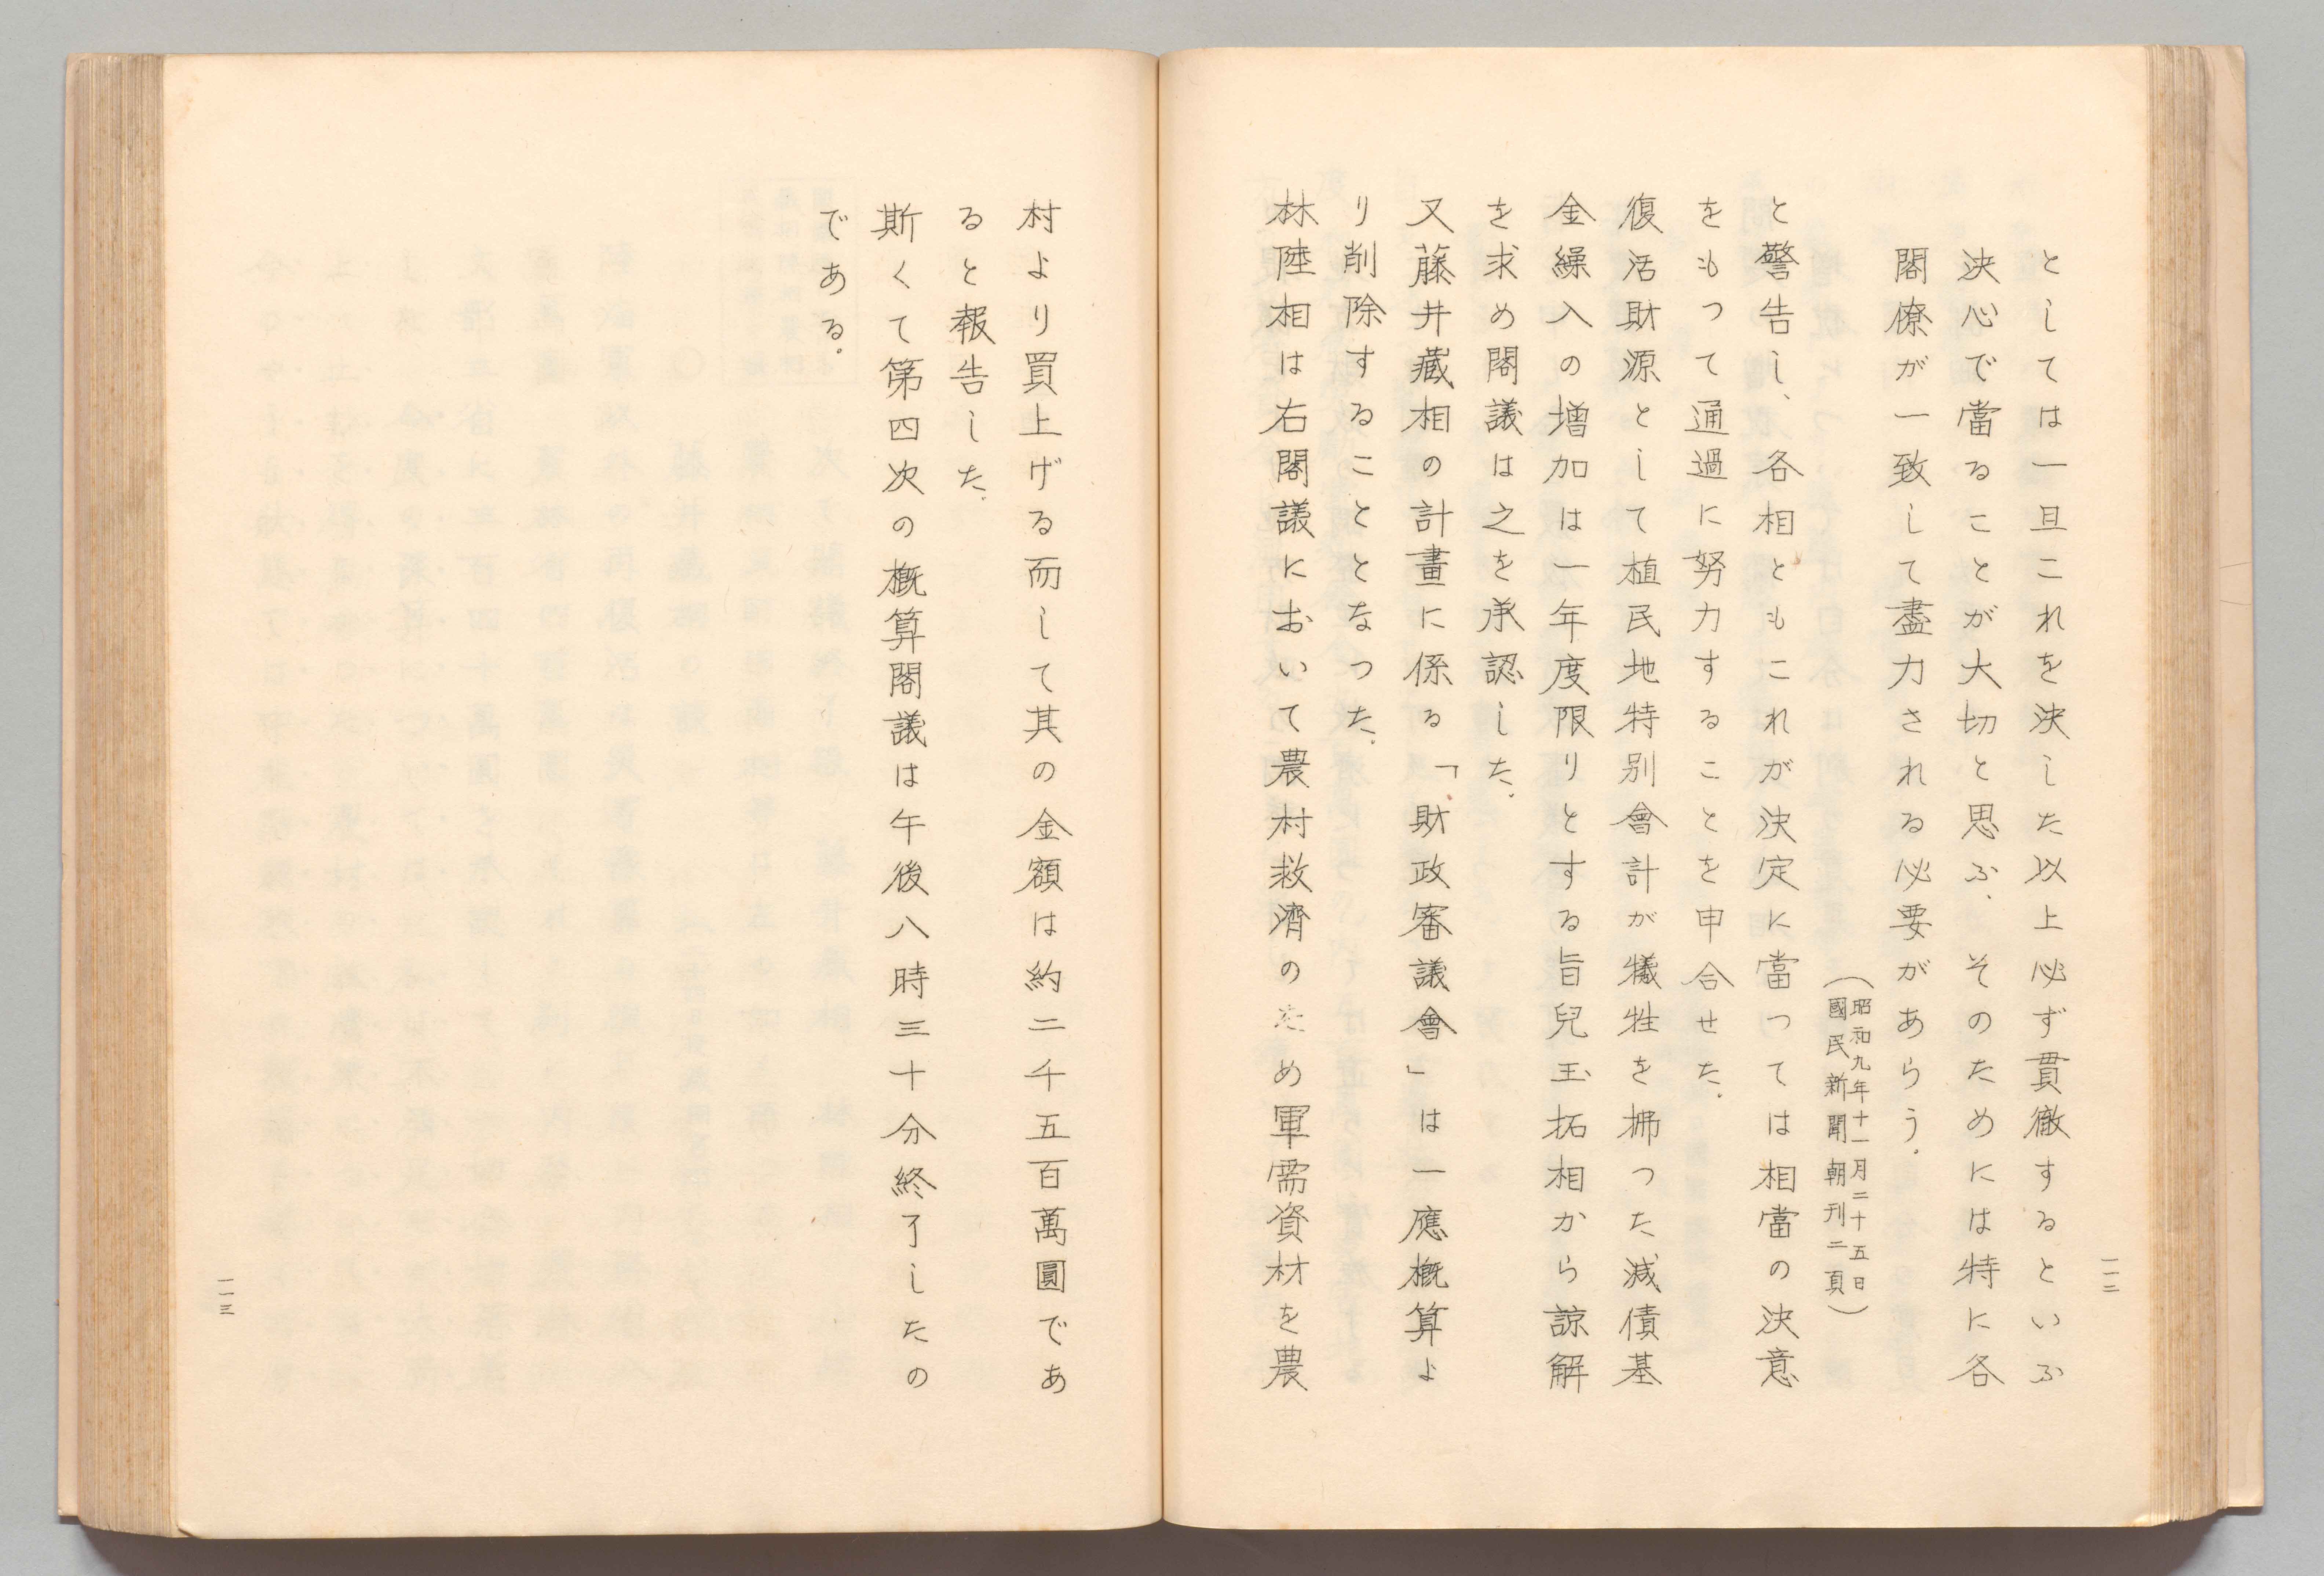 としては一旦これを決した以上必ず貫徹するといふ
決心で當ることが大切と思ふ、そのためには特に各
閣僚が一致して盡力される必要があらう。
（昭和九年十一月二十五日
國民新聞朝刊二頁）
と警告し、各相ともこれが決定に當つては相當の決意
をもつて通過に努力することを申合せた。
復活財源として植民地特別會計が犠牲を拂つた減債基
金繰入の増加は一年度限りとする旨兒玉拓相から諒解
を求め閣議は之を承認した。
又藤井藏相の計畫に係る「財政審議會」は一應概算よ
り削除することとなつた。
林陸相は右閣議において農村救濟のため軍需資材を農
一一二
村より買上げる而して其の金額は約二千五百萬圓であ
ると報告した。
斯くて第四次の概算閣議は午後八時三十分終了したの
である。
一一三